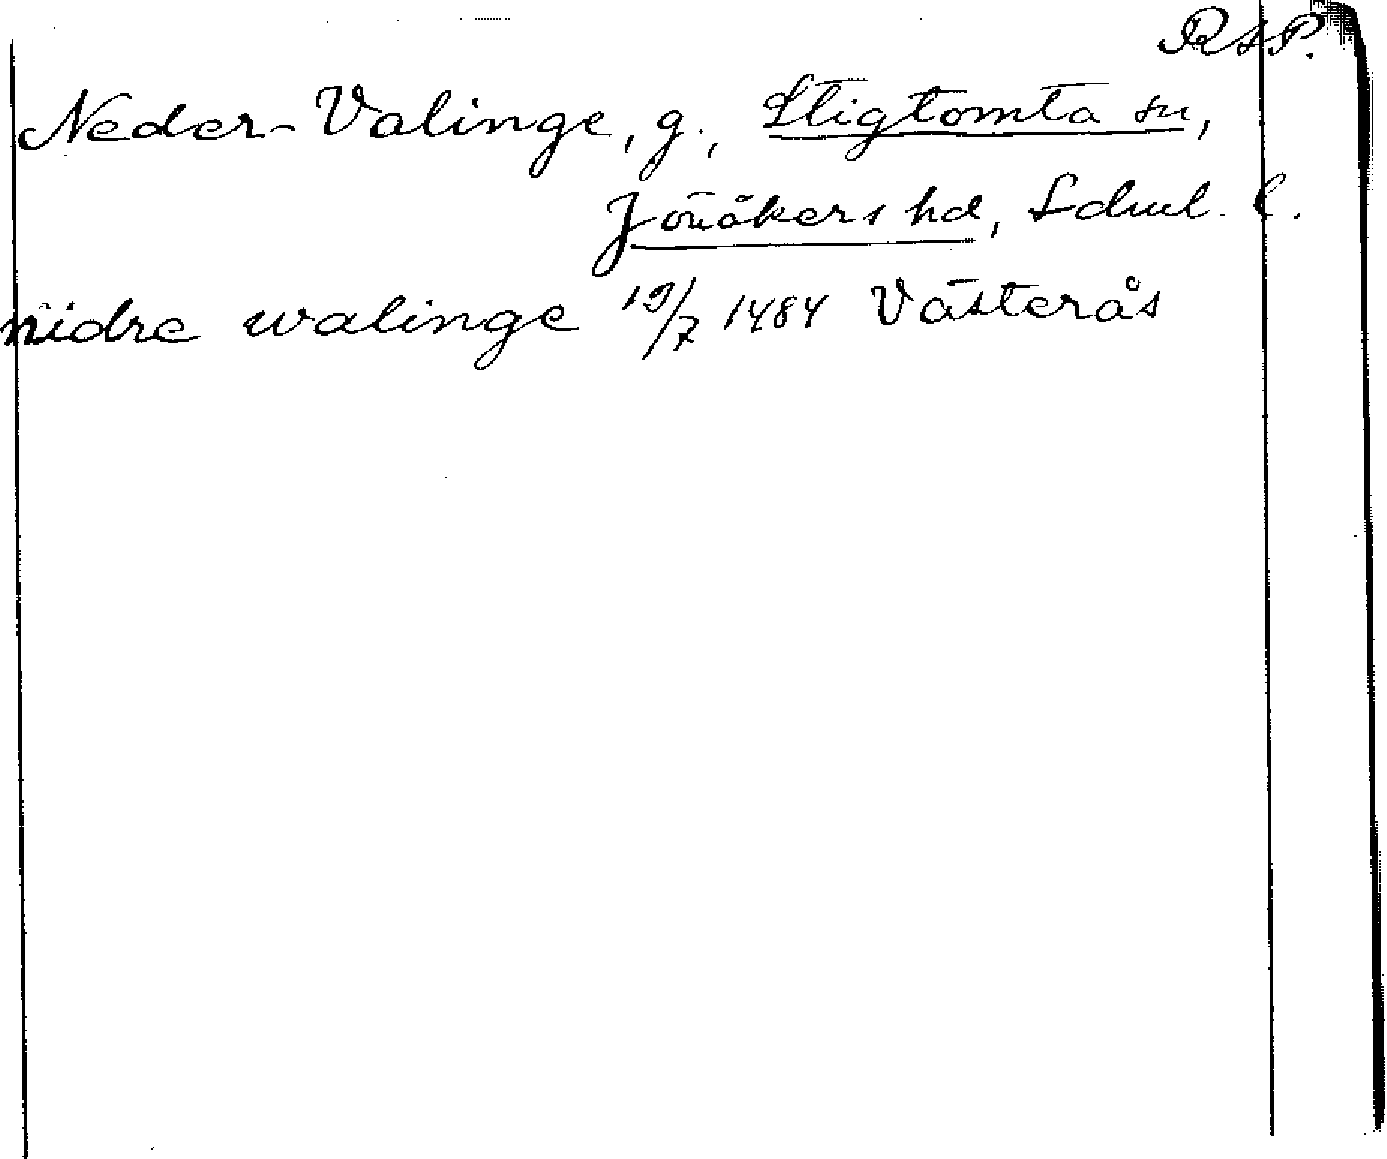 RAP.
Neder-Valinge, g., Stigtomta sn,
Jönåkers hd, Sdml. l.
nidre walinge 19/7 1484 Västerås